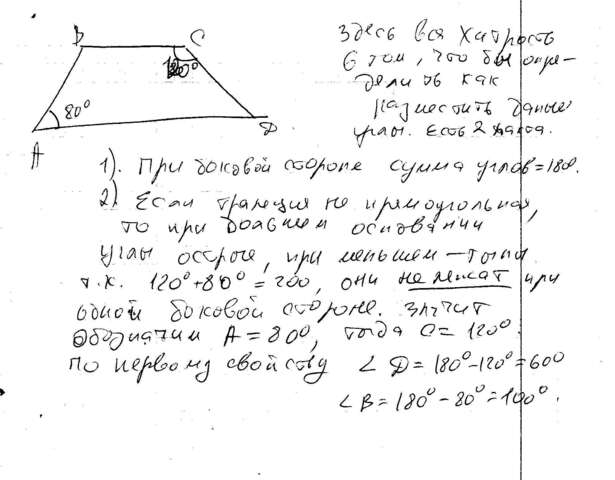 B C
120°
80°
A D
Здесь вся хитрость
в том, что бы опре-
делить как
разместить данные
углы. Есть 2 хака.
1). При боковой стороне сумма углов=180.
2) Если трапеция не прямоугольная,
то при большем основании
углы острые, при меньшем – тупы
т.к. 120°+80°=200, они не лежат при
одной боковой стороне. Значит
обозначим A=80°, тогда C=120°.
По первому свойству ∠D=180°-120°=600
∠B=180°-80°=100°.